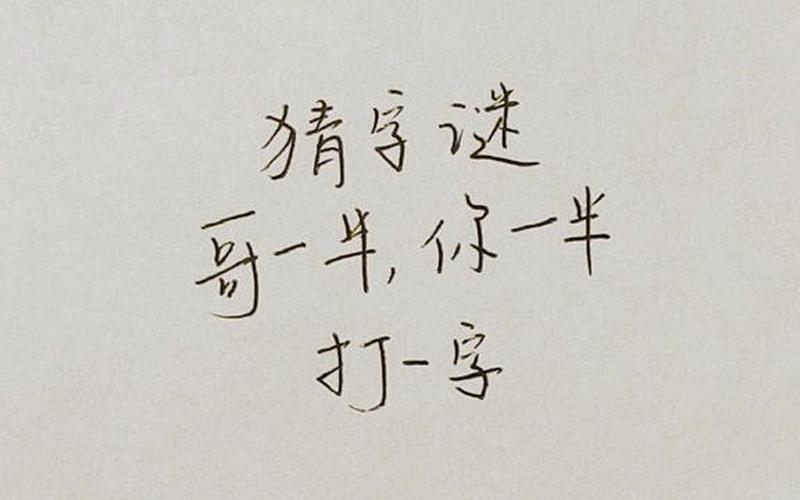 猜字谜
哥一半,你一半
打一字